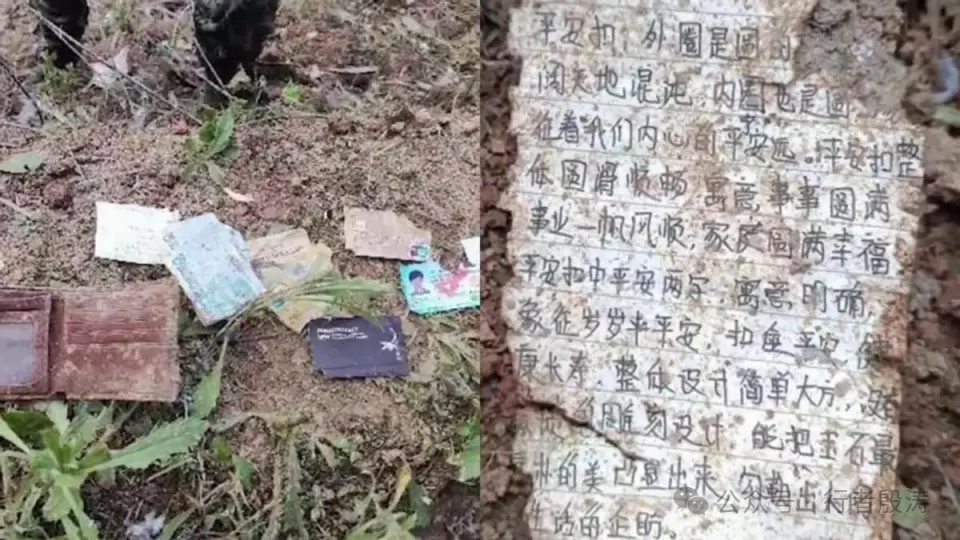 平安扣，外圈是圆的
阔天地混沌，内圈也是圆
征着我们内心的平安远。平安扣整
体圆滑顺畅，寓意，事事圆满
事业一帆风顺，家庭圆满幸福
平安扣中平安两字，寓意明确，
象征岁岁平平安，扣住平安 健
康长寿，整体设计简单大方，没
雕刻设计 能把玉石最
的美凸显出来
生活的企盼。
公众号·行者殷涛